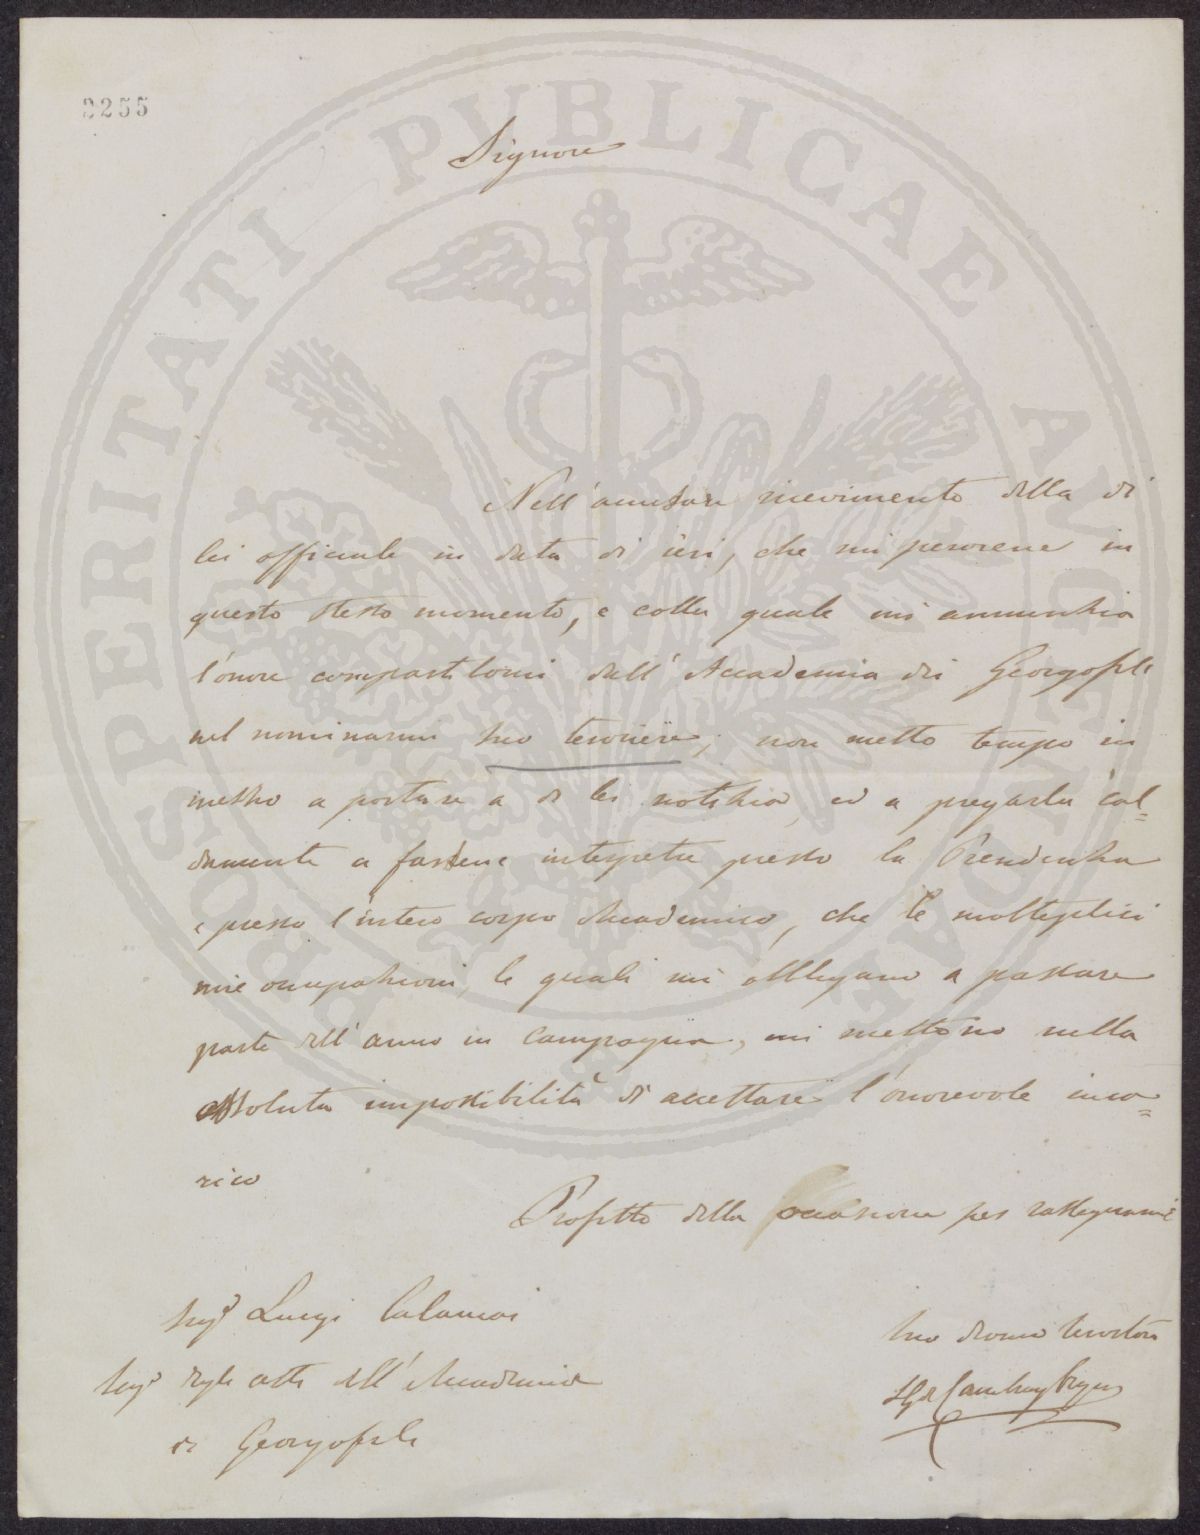 2255
PROSPERITATI PVBLICAE AVGENDAE
Signore
Nell'accusare ricevimento della di
lei officiale in data di ieri, che mi perviene in
questo stesso momento, e colla quale mi annunzia
l'onore compartitomi dall'Accademia dei Georgofili
nel nominarmi suo tesoriere; non metto tempo in
mezzo a portare a di lei notizia, ed a pregarla cal=
damente a farsene interpetre presso la Presidenza
e presso l'intero corpo Accademico, che le molteplici
mie occupazioni, le quali mi obbligano a passare
parte dell'anno in Campagna, mi mettono nella
assoluta impossibilità di accettare l'onorevole inca=
rico
Profitto della occasione per rassegnarmi
Sig.r Luigi Calamai
Seg.o degli atti dell'Accademia
dei Georgofili
Suo devmo servitore
Cambray Digny